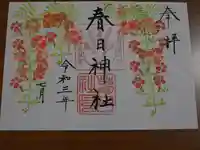 奉拝
春日神社
令和三年
七月